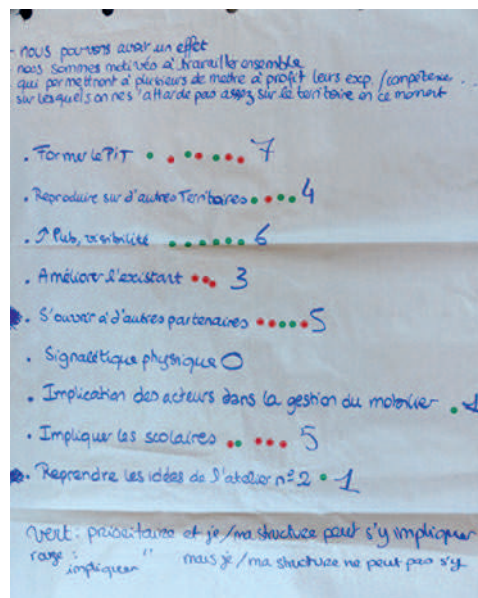 - nous pouvons avoir un effet
- nous sommes motivés à travailler ensemble
qui permettront à plusieurs de mettre à profit leurs exp. / compétence . .
sur lesquels on ne s'attarde pas assez sur le territoire en ce moment
. Former le PiT 7
. Reproduire sur d'autres Territoires 4
. ↗ Pub, visibilité 6
. Améliorer l'existant 3
. S'ouvrir à d'autres partenaires 5
. Signalétique physique 0
. Implication des acteurs dans la gestion du mobilier 1
. Impliquer les scolaires 5
. Reprendre les idées de l'atelier n°2 1
Vert : prioritaire et je / ma structure peut s'y impliquer
rouge : " mais je / ma structure ne peut pas s'y
impliquer